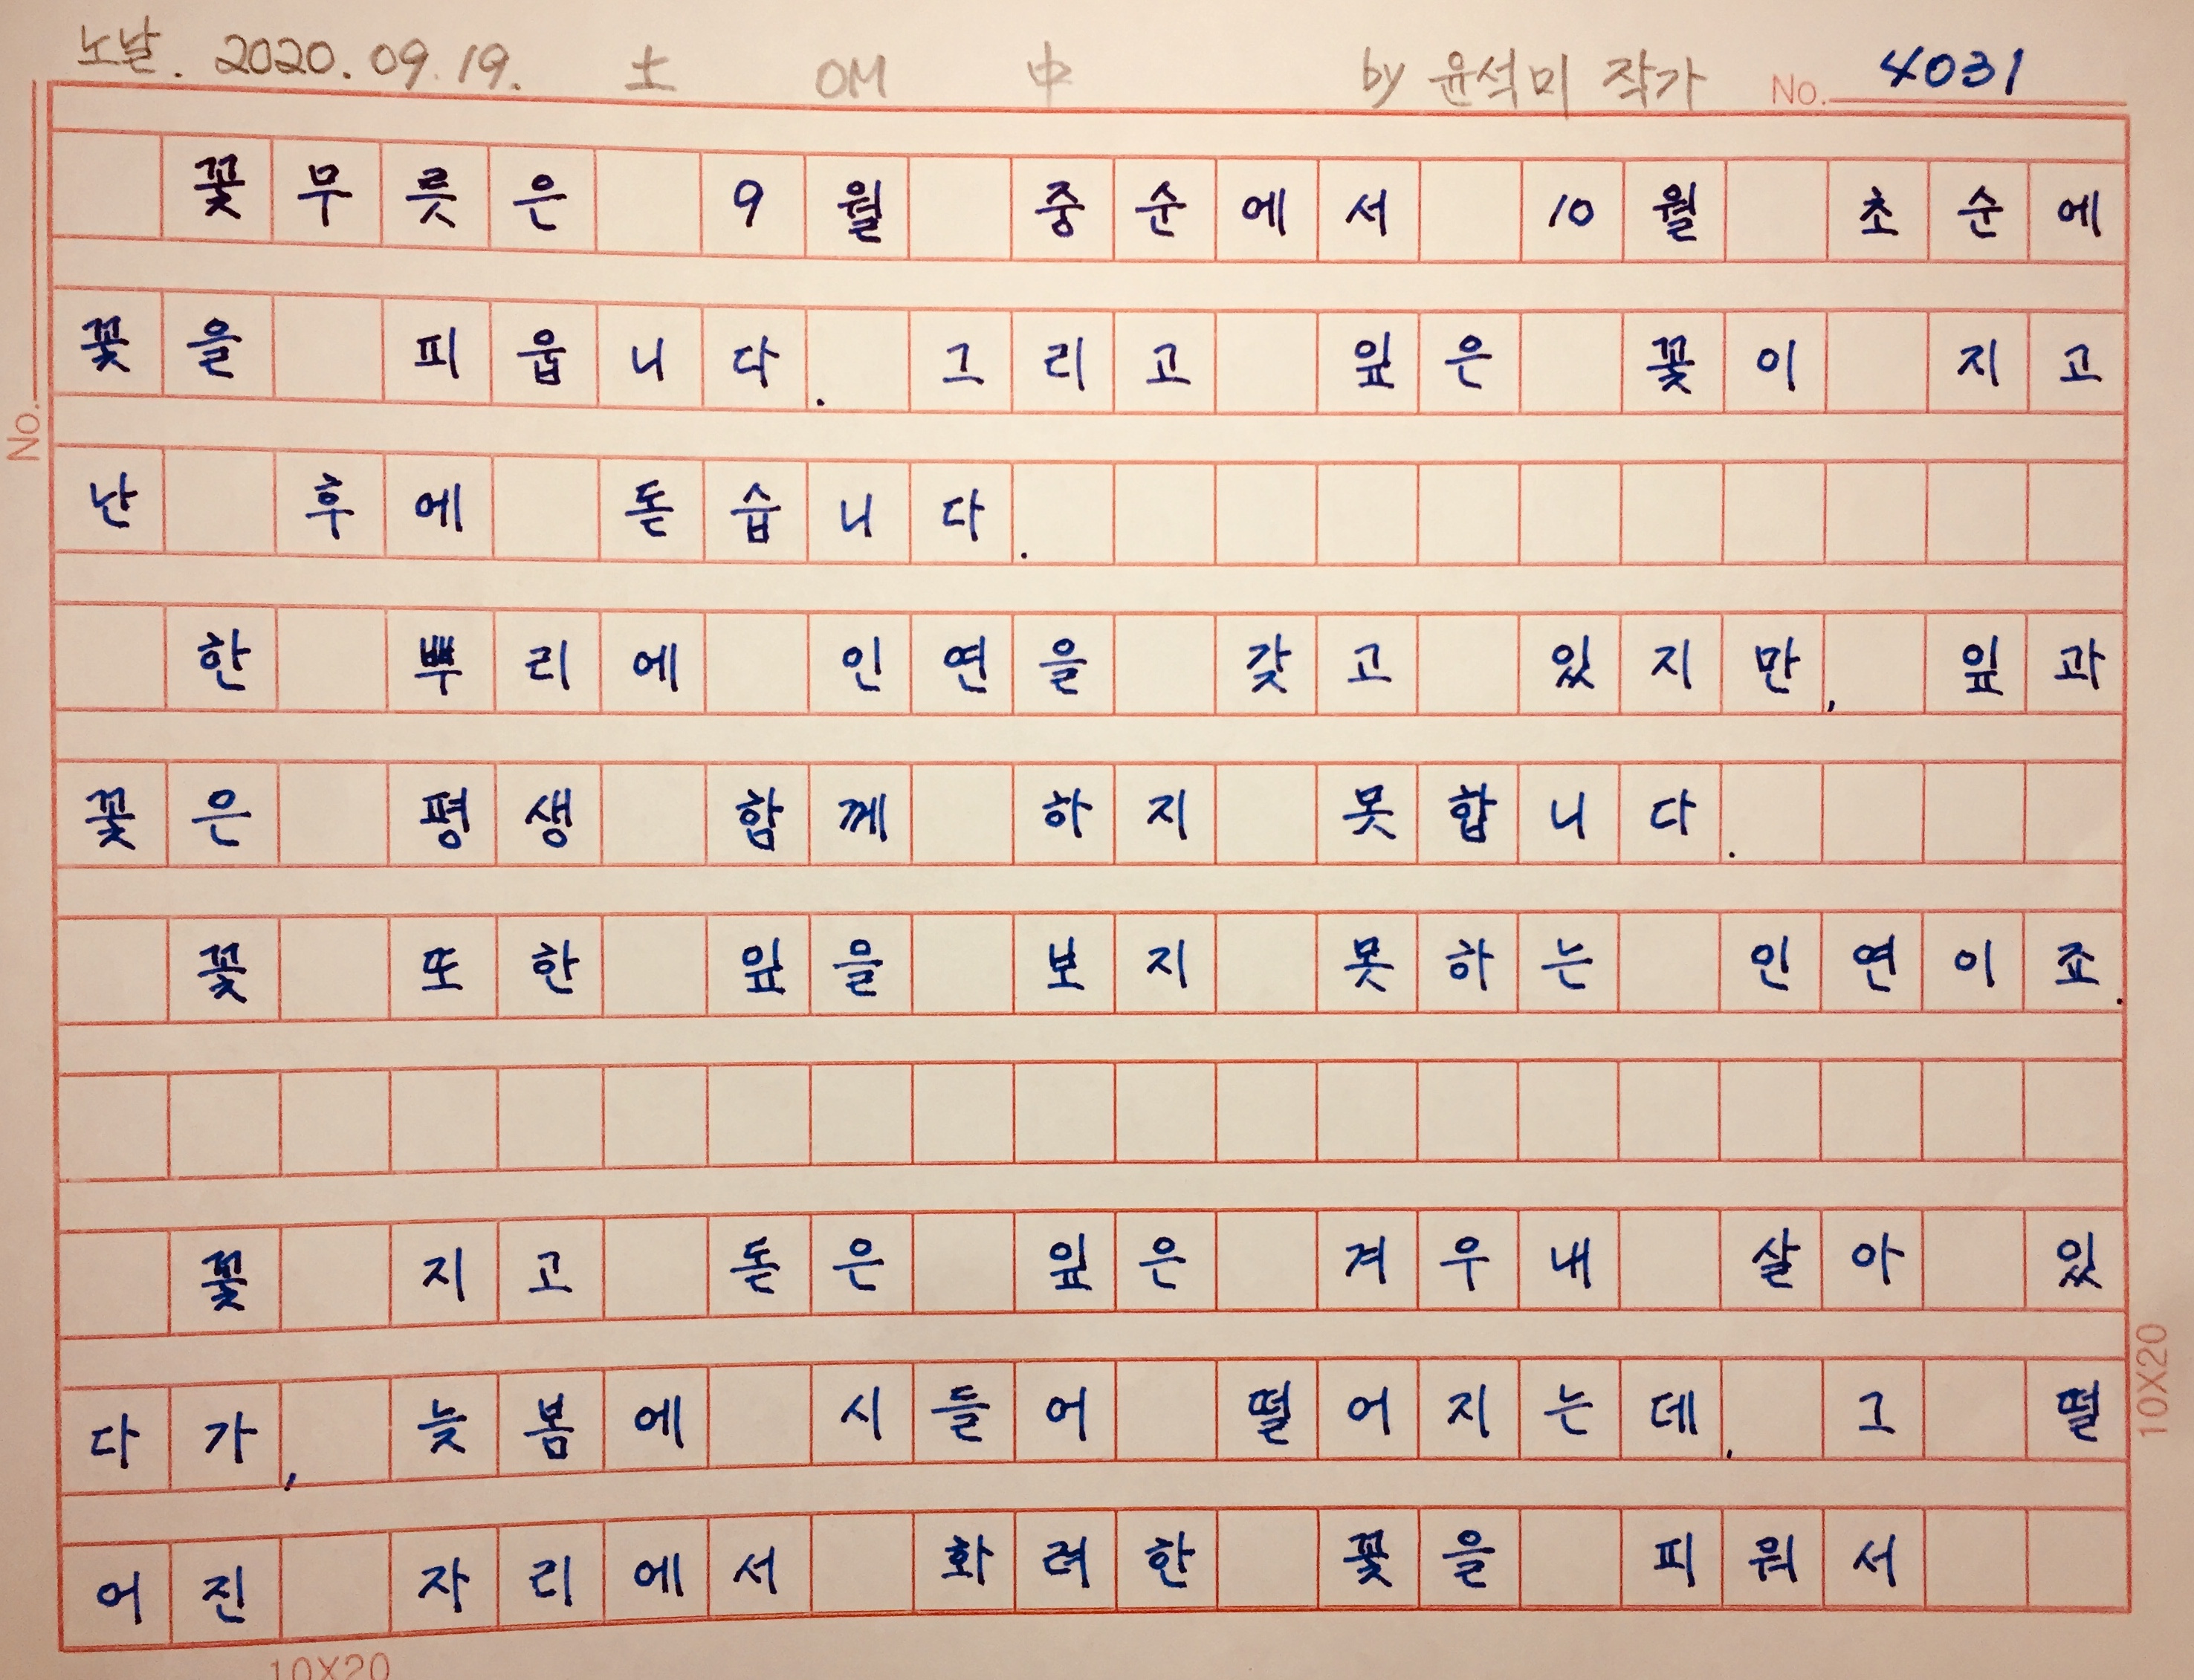 노날. 2020. 09. 19. 土 OM 中 by 윤석미 작가 No. 4031
꽃무릇은 9월 중순에서 10월 초순에
꽃을 피웁니다. 그리고 잎은 꽃이 지고
난 후에 돋습니다.
한 뿌리에 인연을 갖고 있지만, 잎과
꽃은 평생 함께 하지 못합니다.
꽃 또한 잎을 보지 못하는 인연이죠.
꽃 지고 돋은 잎은 겨우내 살아 있
다가, 늦봄에 시들어 떨어지는데, 그 떨
어진 자리에서 화려한 꽃을 피워서
No.
10X20
10X20